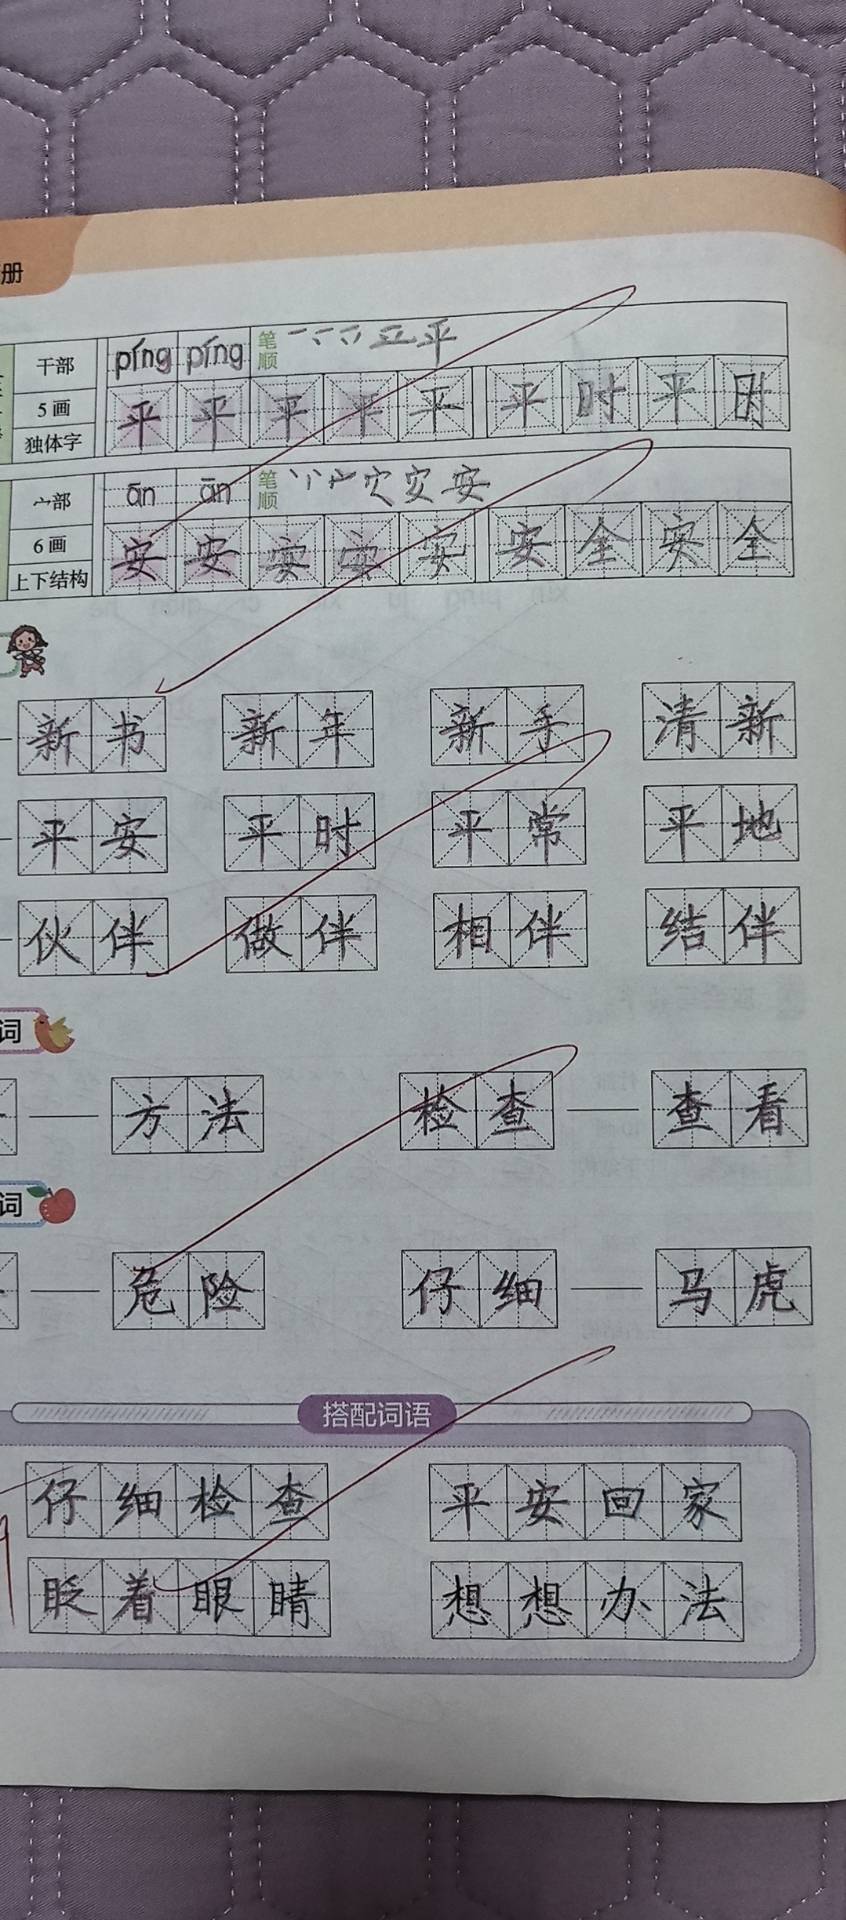 册
干部 píng píng 笔顺 平
5画 平 平 平 平 平 平 时 平 时
独体字
宀部 ān ān 笔顺 安
6画 安 安 安 安 安 安 全 安 全
上下结构
新书 新年 新手 清新
平安 平时 平常 平地
伙伴 做伴 相伴 结伴
词
方法 检查 查看
词
危险 仔细 马虎
搭配词语
仔细检查 平安回家
眨着眼睛 想想办法